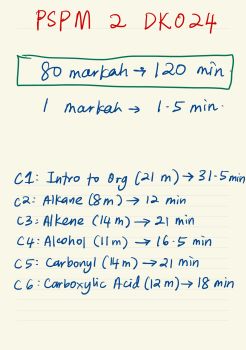 PSPM 2 DK024
80 markah → 120 min
1 markah → 1.5 min.
C1: Intro to Org (21 m) → 31.5 min
C2: Alkane (8 m) → 12 min
C3: Alkene (14 m) → 21 min
C4: Alcohol (11 m) → 16.5 min
C5: Carbonyl (14 m) → 21 min
C6: Carboxylic Acid (12 m) → 18 min